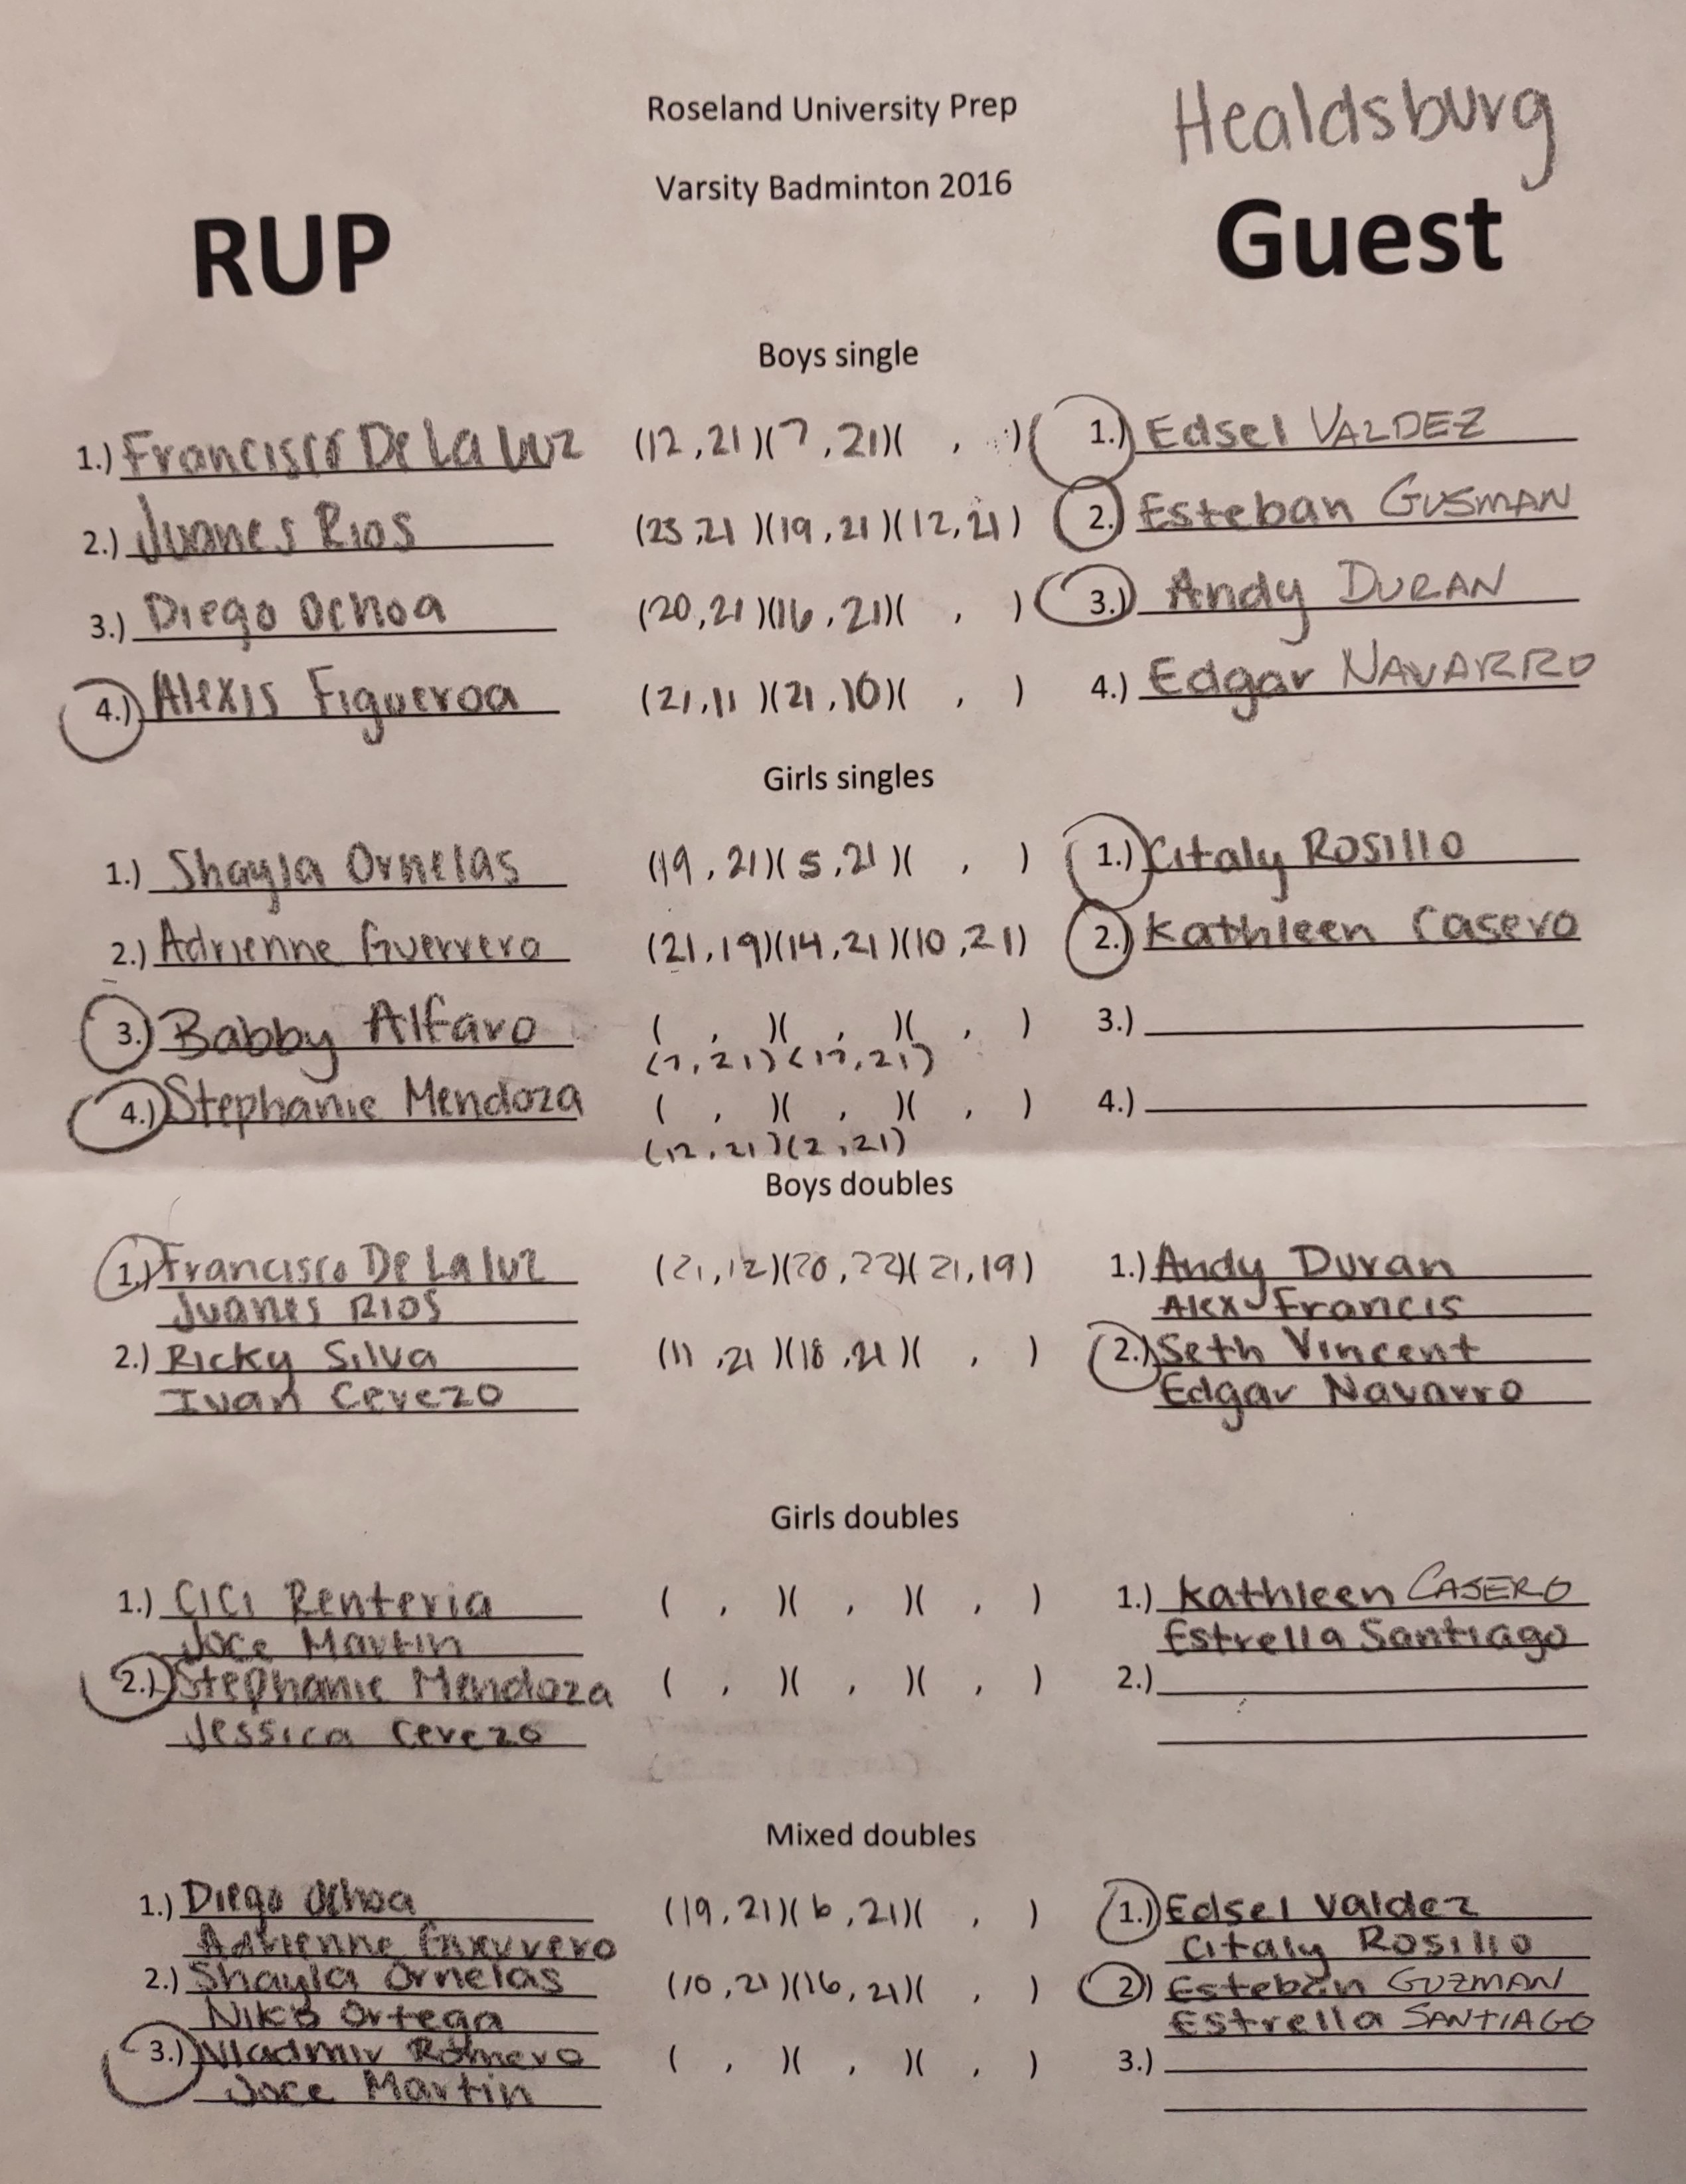 Healdsburg
Roseland University Prep
Varsity Badminton 2016
RUP Guest
Boys single
1.) Francisco De La Luz (12, 21)(7, 21)( , ) 1.) Edsel VALDEZ
2.) Juanes Rios (23, 21)(19, 21)(12, 21) 2.) Esteban GUSMAN
3.) Diego Ochoa (20, 21)(16, 21)( , ) 3.) Andy DURAN
4.) Alexis Figueroa (21, 11)(21, 10)( , ) 4.) Edgar NAVARRO
Girls singles
1.) Shayla Ornelas (19, 21)(5, 21)( , ) 1.) Citaly Rosillo
2.) Adrienne Guerrero (21, 19)(14, 21)(10, 21) 2.) Kathleen Casero
3.) Babby Alfaro ( , )( , )( , ) 3.)
(7, 21)(17, 21)
4.) Stephanie Mendoza ( , )( , )( , ) 4.)
(12, 21)(2, 21)
Boys doubles
1.) Francisco De La Luz (21, 12)(20, 22)(21, 19) 1.) Andy Duran
Juanes Rios Alex Francis
2.) Ricky Silva (11, 21)(18, 21)( , ) 2.) Seth Vincent
Ivan Cerezo Edgar Navarro
Girls doubles
1.) CiCi Renteria ( , )( , )( , ) 1.) Kathleen CASERO
Joce Martin Estrella Santiago
2.) Stephanie Mendoza ( , )( , )( , ) 2.)
Jessica Cerezo
Mixed doubles
1.) Diego Ochoa (19, 21)(6, 21)( , ) 1.) Edsel Valdez
Adrienne Guerrero Citaly Rosillo
2.) Shayla Ornelas (10, 21)(16, 21)( , ) 2.) Esteban GUZMAN
Niko Ortega Estrella SANTIAGO
3.) Vladmir Romero ( , )( , )( , ) 3.)
Joce Martin